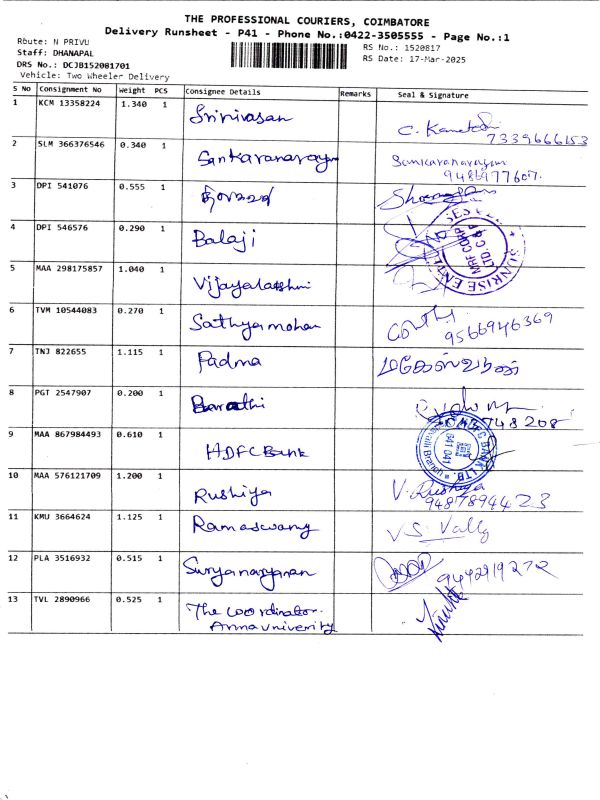 THE PROFESSIONAL COURIERS, COIMBATORE
Delivery Runsheet - P41 - Phone No.:0422-3505555 - Page No.:1
Route: N PRIVU
RS No.: 1520817
Staff: DHANAPAL
RS Date: 17-Mar-2025
DRS No.: DCJB152081701
Vehicle: Two Wheeler Delivery
S No Consignment No Weight PCS Consignee Details Remarks Seal & Signature
1 KCM 13358224 1.340 1 Srinivasan
7339666153
2 SLM 366376546 0.340 1 Sankaranarayan Sankaranarayan
9486977607.
3 DPI 541076 0.555 1
4 DPI 546576 0.290 1 Balaji
5 MAA 298175857 1.040 1 Vijayalakshmi
6 TVM 10544083 0.270 1 Sathyamohan
9566946369
7 TNJ 822655 1.115 1 Padma மகேஸ்வரன்
8 PGT 2547907 0.200 1 Barathi
748208
9 MAA 867984493 0.610 1 HDFC Bank
10 MAA 576121709 1.200 1 Rushiya V. Rushiya
9487894423
11 KMU 3664624 1.125 1 Ramaswamy V.S. Vally
12 PLA 3516932 0.515 1 Suryanarayanan 9442919272
13 TVL 2890966 0.525 1 The coordinator.
Anna univerity